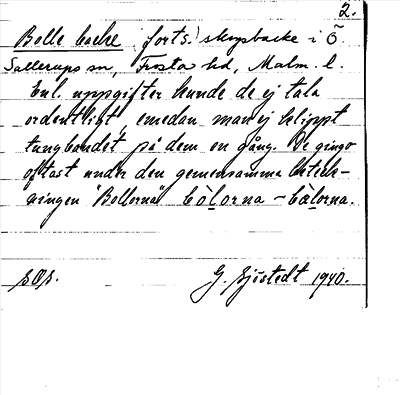 2.
Bolle backe (forts.) skogsbacke i Ö
Sallerups sn, Frosta hd, Malm. l.
Enl. uppgifter kunde de ej tala
ordentligt, emedan man ej klippt
tungbandet på dem en gång. De gingo
oftast under den gemensamma beteck-
ningen "Bollorna" bòlorna – bàlorna.
G. Sjöstedt 1940.